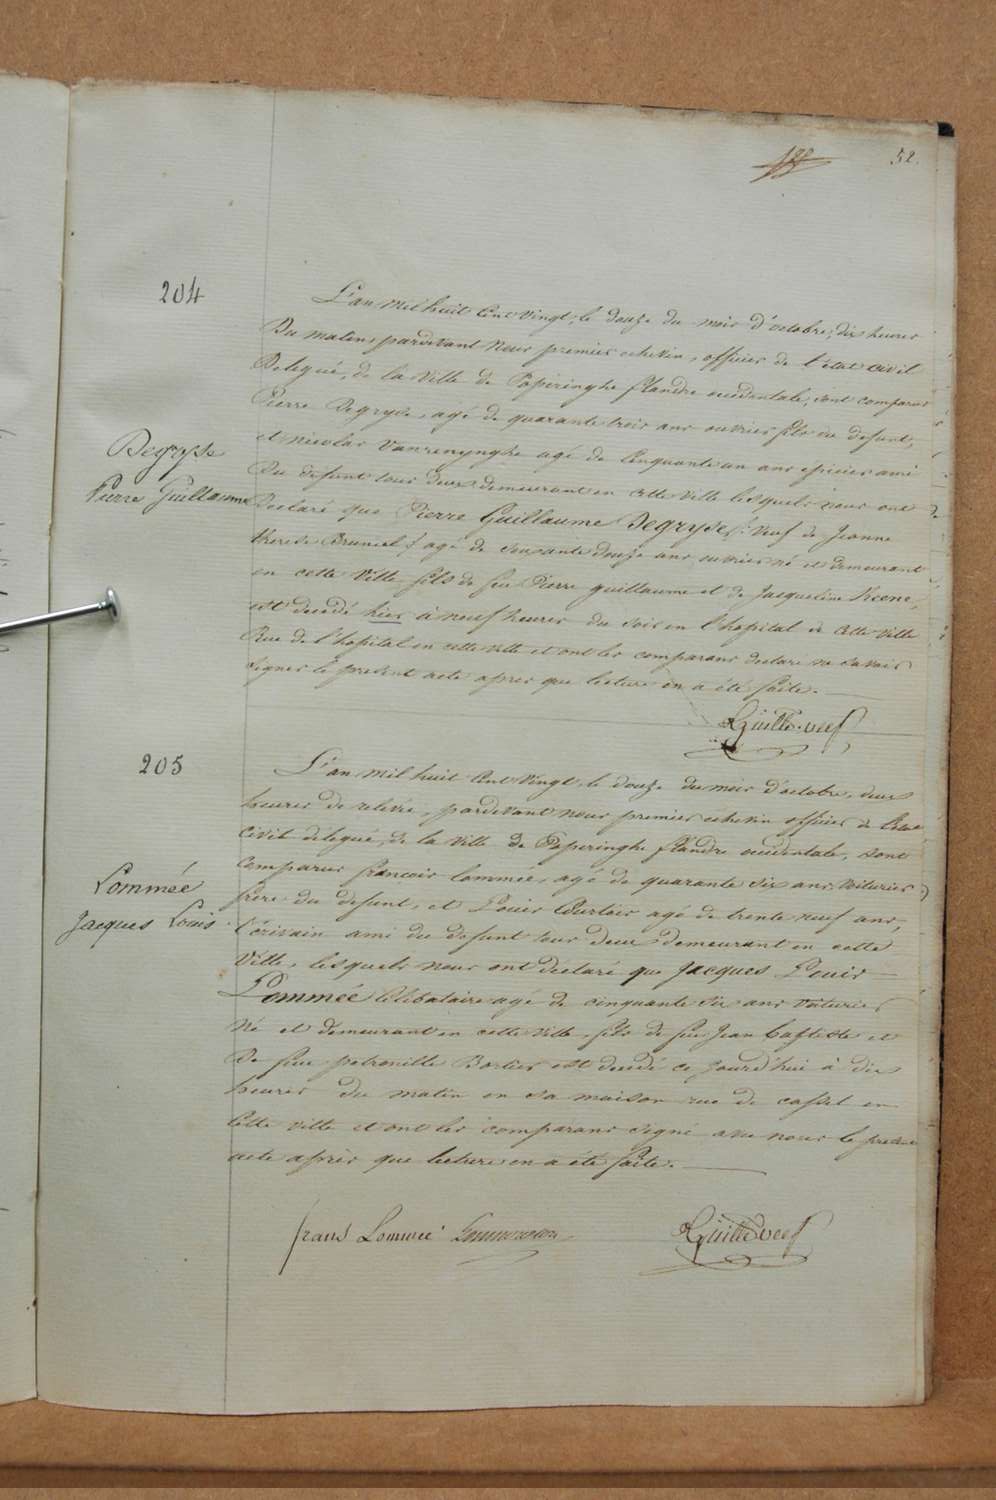 52.
204
Degryse
Pierre Guillaume
L'an mil huit Cent vingt, le douze du mois d'octobre, dix heures
du matin, pardevant Nous premier echevin, officier de l'état civil
delegué, de la Ville de Popiringhe flandre occidentale, sont comparus
Pierre Degryse, agé de quarante trois ans ouvrier fils du defunt,
et nicolas Vanrenynghe agé de Cinquante un ans épicier ami
du defunt tous deux demeurant en cette Ville lesquels nous ont
declaré que Pierre Guillaume Degryse, veuf de Jeanne
therese Bruneel, agé de soixante douze ans ouvrier né et demeurant
en cette Ville fils de feu Pierre guillaume et de Jacqueline
est decedé hier à neuf heures du soir en l'hopital de Cette Ville
Rue de l'hopital en cette Ville et ont les comparans declaré ne savoir
signer le present acte apres que lecture en a été faite.
205
Lommée
Jacques Louis
L'an mil huit Cent Vingt, le douze du mois d'octobre, deux
heures de relevée, pardevant nous premier échevin officier de l'état
civil delegué, de la Ville de Popiringhe flandre occidentale, sont
Comparus françois Lommée, agé de quarante six ans, Voiturier
frère du defunt, et Louis Courtois agé de trente neuf ans,
Écrivain ami du defunt tous deux demeurant en cette
Ville, lesquels nous ont déclaré que Jacques Louis
Lommée Célibataire agé de cinquante six ans Voiturier
Né et demeurant en cette Ville, fils de feu Jean baptiste et
De feu petronille Bortier est decedé ce jourd'hui à dix
heures du matin en sa maison rue de cassel en
Cette Ville et ont les comparans signé avec nous le présent
acte après que lecture en a été faite.
frans Lommée